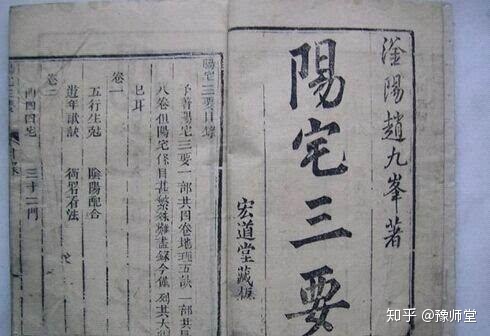 滏陽趙九峯著
陽宅三要
宏道堂藏板
陽宅三要目錄
予著陽宅三要一部共四卷地理五訣一部共
八卷但陽宅條目甚繁殊難盡錄今僅列其大
已耳
卷一
五行生剋 陰陽配合
遊年歌訣 衙署看法
卷二
西四四宅 三十二門
知乎 @豫师堂